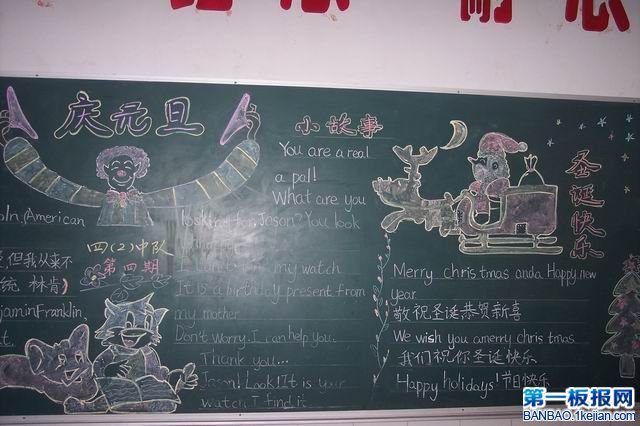 庆元旦
oln,American
但我从来不
统 林肯)
jaminFranklin,
四(2)中队
第四期
小故事
You are a real
a pal!
What are you
looking for, Jason? You look
my watch
It is a birthday present from
my mother
Don't worry. I can help you.
Thank you...
Jason! Look! It is your
watch I find it...
圣诞快乐
Merry christmas anda Happy new
year
敬祝圣诞恭贺新喜
We wish you amerry christmas
我们祝你圣诞快乐
Happy holidays! 节日快乐
第一板报网
BANBAO.1kejian.com